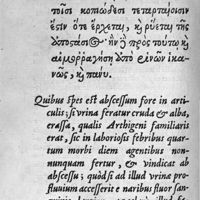 τοῖσι κοπιώδεσι τεταρταίοισιν
ἐςὶν ὅτε ἔρχεται, κ̀ ῥύεται τῆς
ἀποςάσι
πρὸς τούτῳ κ̀
αἱμοῤῥαγήσῃ ἀπὸ ῥινῶν ἱκα-
νῶς, κ̀ πανυ.
Quibus spes est abscessum fore in arti-
culis; si vrina feratur cruda & alba,
crassa, qualis Archigeni familiaris
erat, sic in laboriosis febribus quar-
tum morbi diem agentibus non-
nunquam fertur, & vindicat ab
abscessu; quòd si ad illud vrinæ pro-
fluuium accesserit e naribus fluor san-